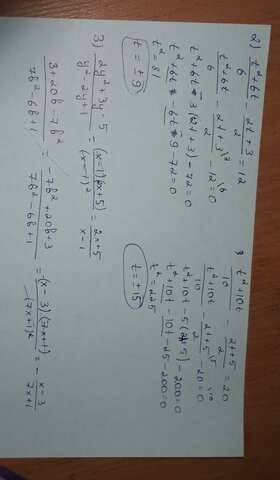 2) (t² + 6t)/6 - (2t + 3)/2 = 12
(t² + 6t)/6 - (2t + 3)/2 \3 - 12 \6 = 0
t² + 6t - 3(2t + 3) - 72 = 0
t² + 6t - 6t - 9 - 72 = 0
t² = 81
t = ± 9
3 (t² + 10t)/10 - (2t + 5)/2 = 20
(t² + 10t)/10 - (2t + 5)/2 \5 - 20 \10 = 0
t² + 10t - 5(2t + 5) - 200 = 0
t² + 10t - 10t - 25 - 200 = 0
t² = 225
t = ± 15
3) (2y² + 3y - 5)/(y² - 2y + 1) = (x - 1)(2x + 5)/(x - 1)² = (2x + 5)/(x - 1)
(3 + 20b - 7b²)/(7b² - 6b + 1) = (-7b² + 20b + 3)/(7b² - 6b + 1) = (x - 3)(7x + 1)/(7x + 1)² = - (x - 3)/(7x + 1)